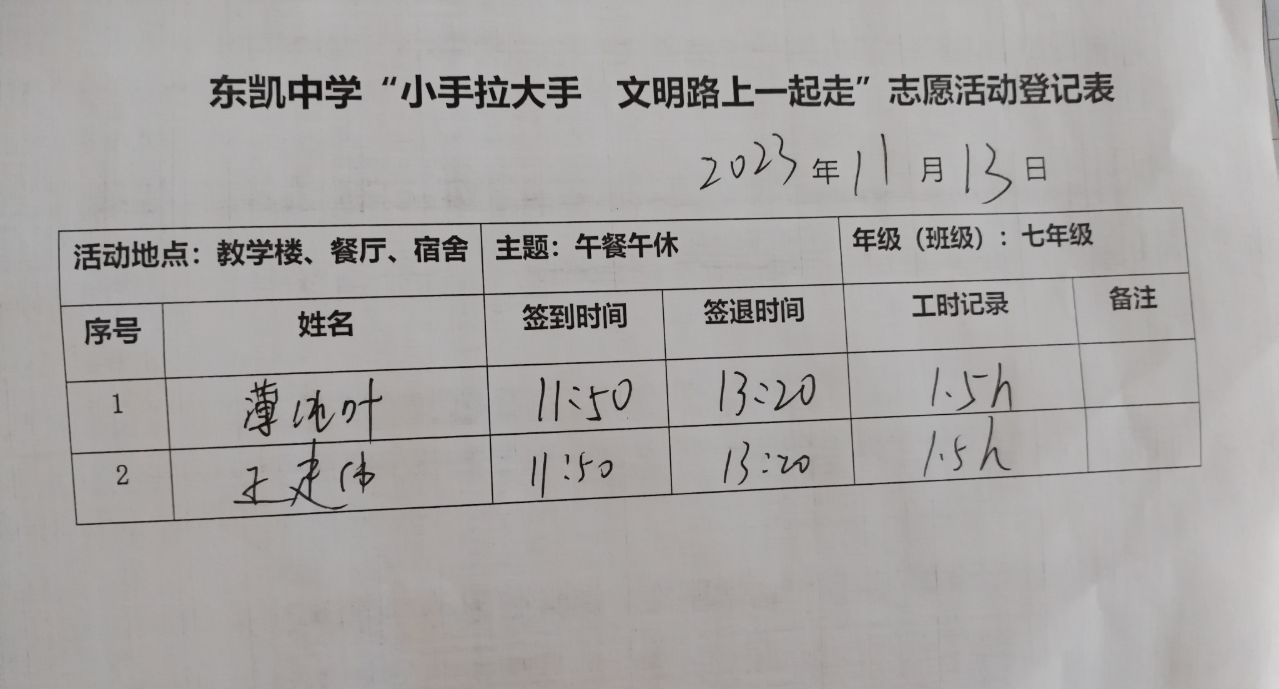 东凯中学“小手拉大手 文明路上一起走”志愿活动登记表
2023年11月13日
活动地点：教学楼、餐厅、宿舍 主题：午餐午休 年级（班级）：七年级
序号 姓名 签到时间 签退时间 工时记录 备注
1 薄 叶 11:50 13:20 1.5h
2 王建伟 11:50 13:20 1.5h